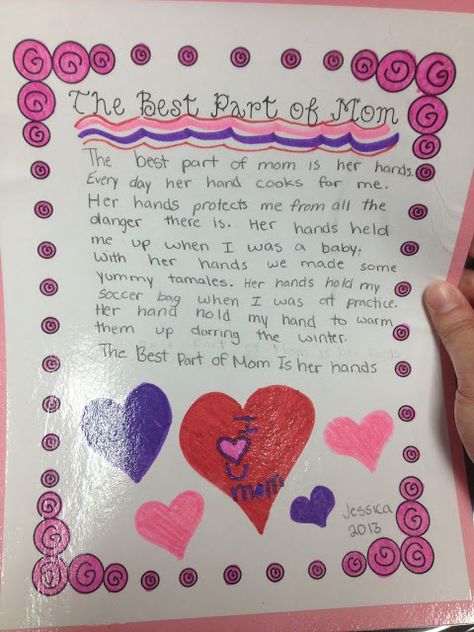 The Best Part of Mom
The best part of mom is her hands.
Every day her hand cooks for me.
Her hands protects me from all the
danger there is. Her hands held
me up when I was a baby.
With her hands we made some
yummy tamales. Her hands hold my
soccer bag when I was at practice.
Her hand hold my hand to warm
them up dorring the winter.
The Best Part of Mom Is her hands
I
U
mom
Jessica
2013